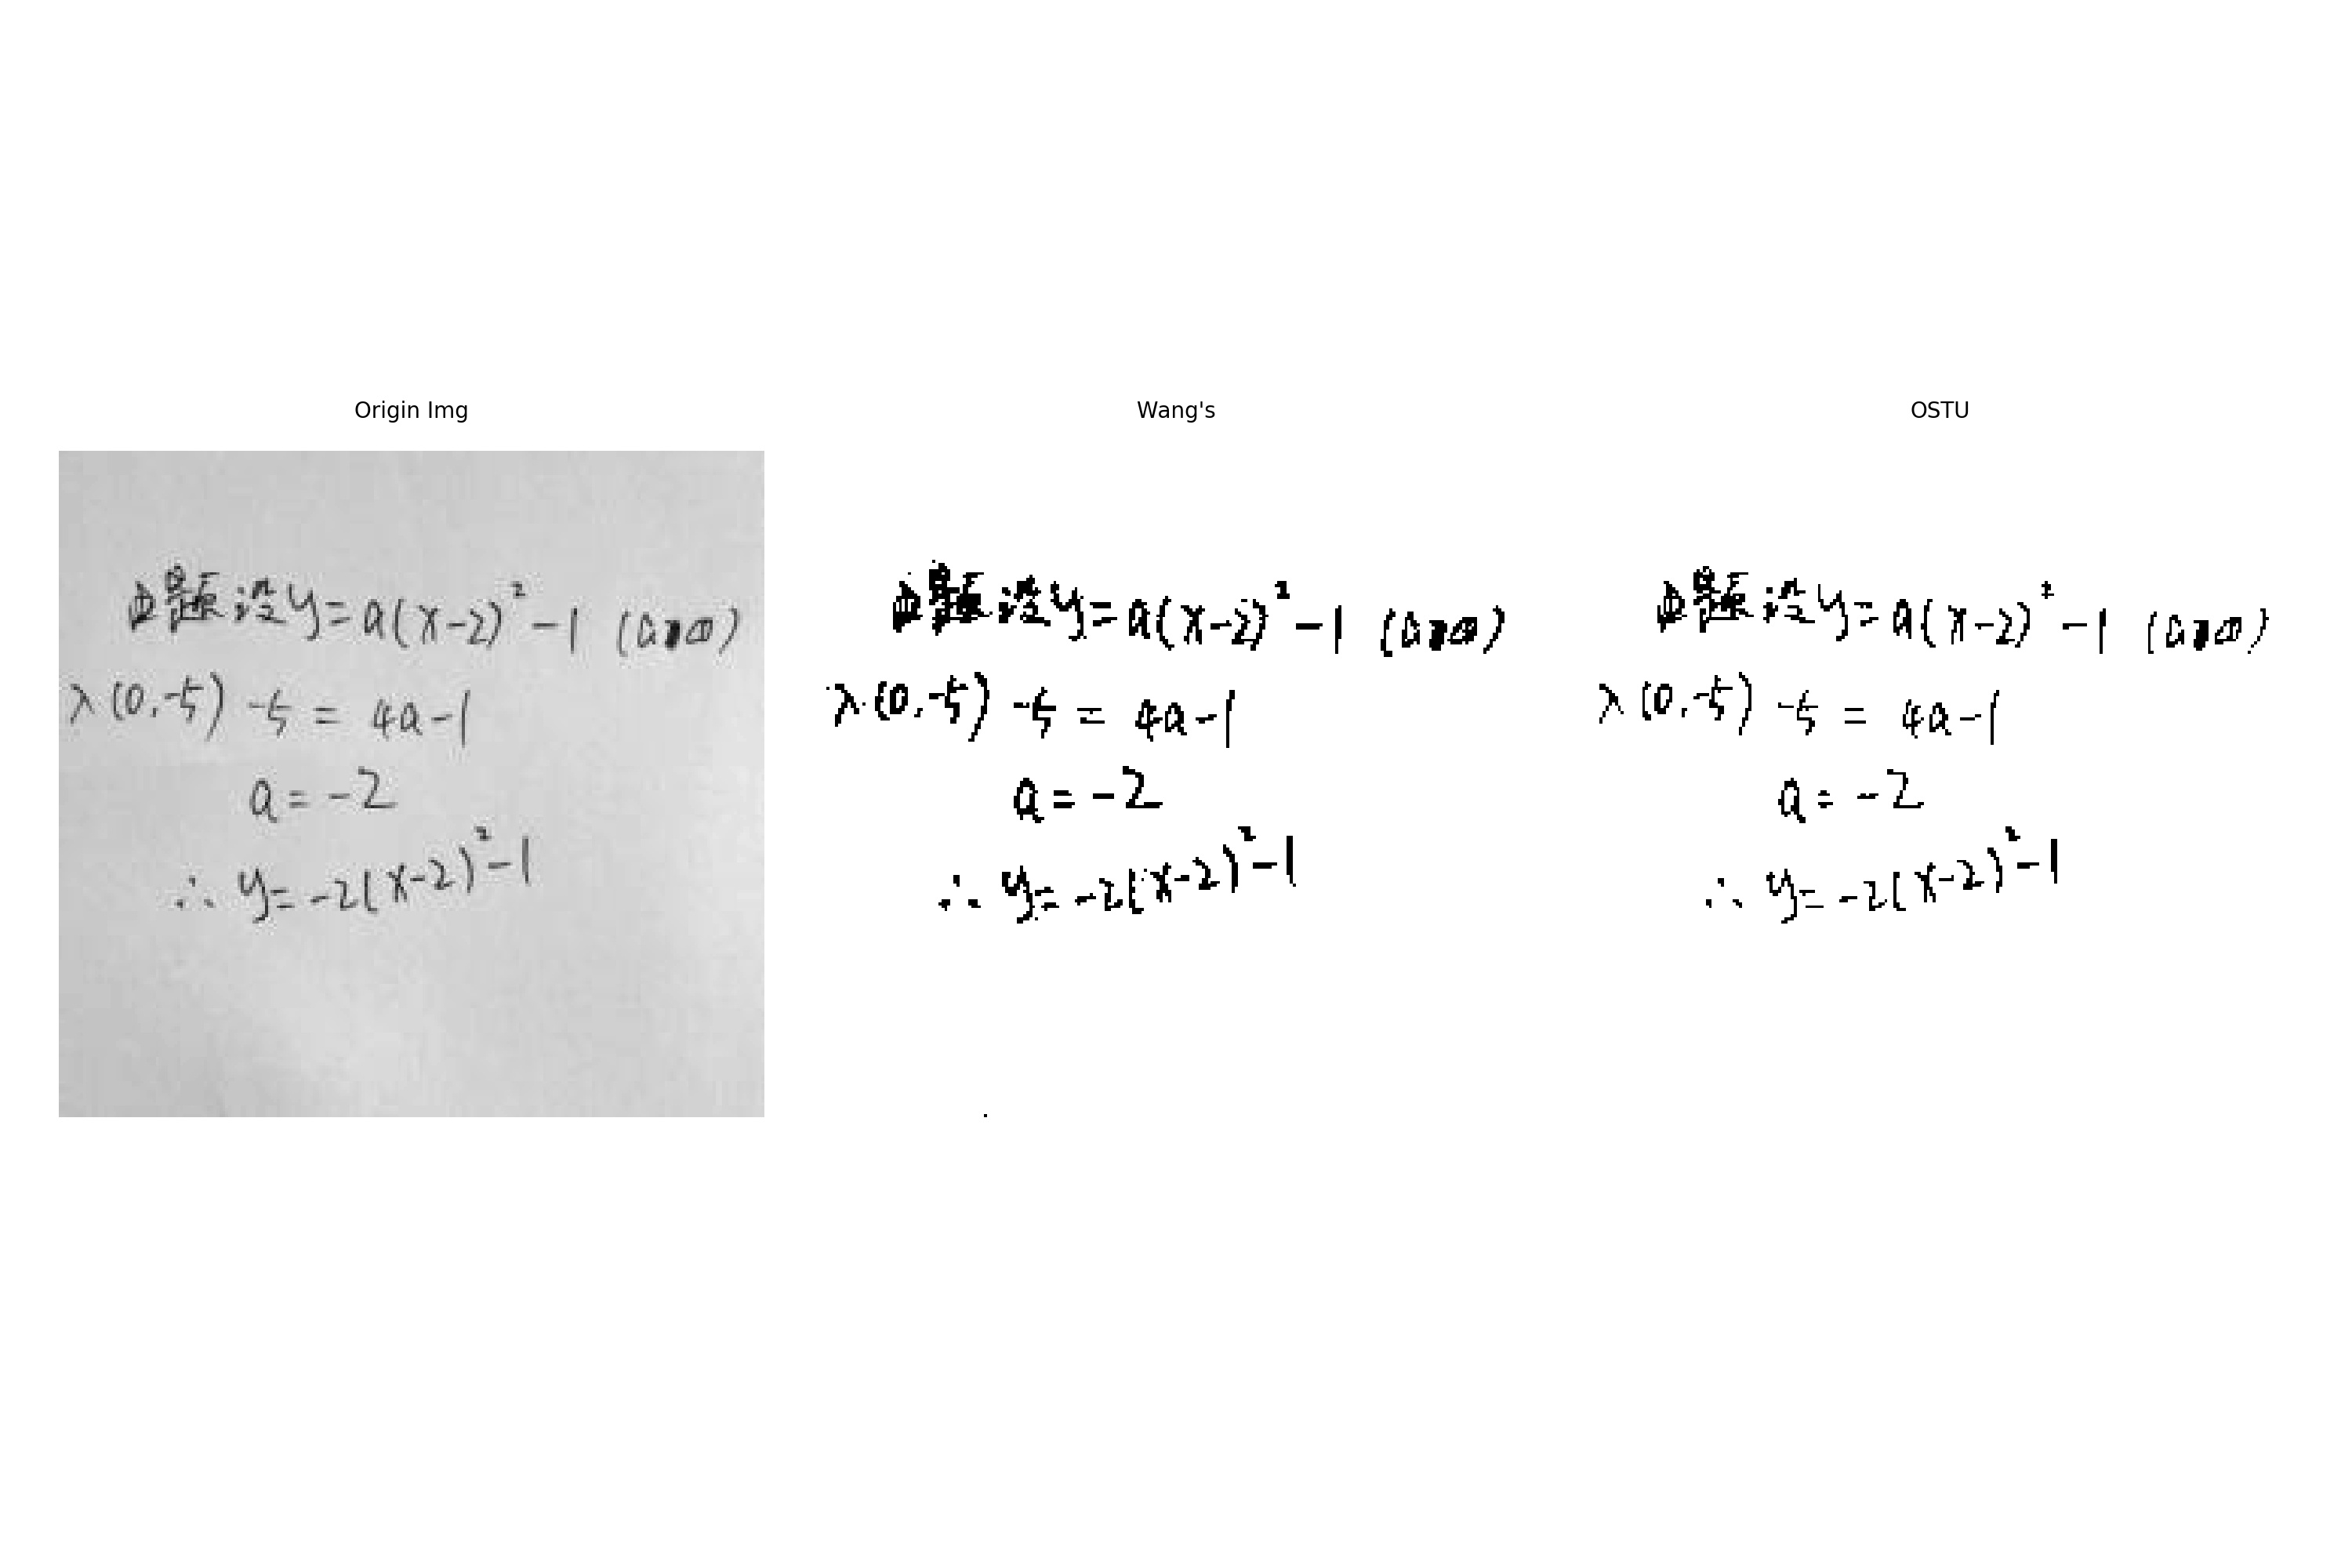 Origin Img
由题设y=a(x-2)²-1 (a
λ(0,-5) -5 = 4a-1
a=-2
∴ y=-2(x-2)²-1
Wang's
由题设y=a(x-2)²-1 (a
λ(0,-5) -5 = 4a-1
a=-2
∴ y=-2(x-2)²-1
OSTU
由题设y=a(x-2)²-1 (a
λ(0,-5) -5 = 4a-1
a=-2
∴ y=-2(x-2)²-1